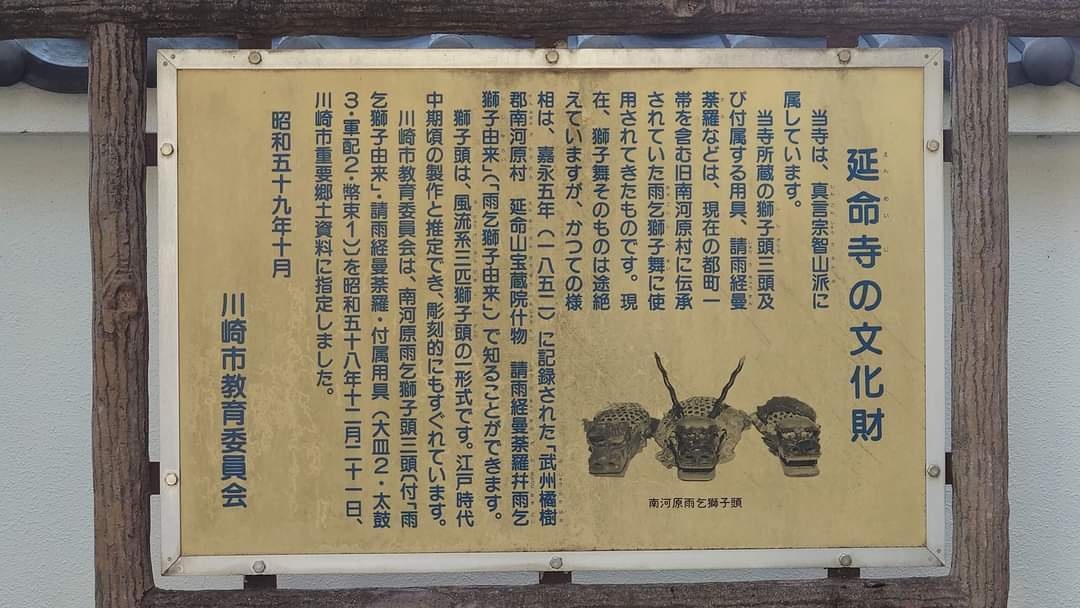 延命寺の文化財
当寺は、真言宗智山派に
属しています。
当寺所蔵の獅子頭三頭及
び付属する用具、請雨経曼
荼羅などは、現在の都町一
帯を含む旧南河原村に伝承
されていた雨乞獅子舞に使
用されてきたものです。現
在、獅子舞そのものは途絶
えていますが、かつての様
相は、嘉永五年（一八五二）に記録された「武州橘樹
郡南河原村 延命山宝蔵院什物 請雨経曼荼羅幷雨乞
獅子由来」（「雨乞獅子由来」）で知ることができます。
獅子頭は、風流系三匹獅子頭の一形式です。江戸時代
中期頃の製作と推定でき、彫刻的にもすぐれています。
川崎市教育委員会は、南河原雨乞獅子頭三頭〔付「雨
乞獅子由来」・請雨経曼荼羅・付属用具（大皿２・太鼓
３・軍配２・幣束１）〕を昭和五十八年十二月二十一日、
川崎市重要郷土資料に指定しました。
昭和五十九年十月
川崎市教育委員会
南河原雨乞獅子頭